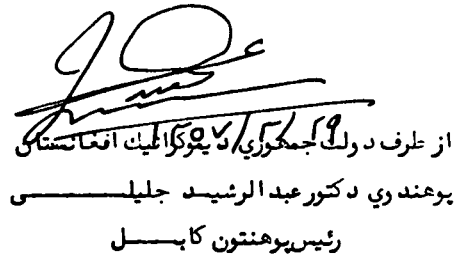 از طرف دولت جمهوري دیموکراتیك افغانستان
پوهندوي دکتور عبدالرشیـد جلیلـــــــی
رئیس پوهنتون کابـــــل